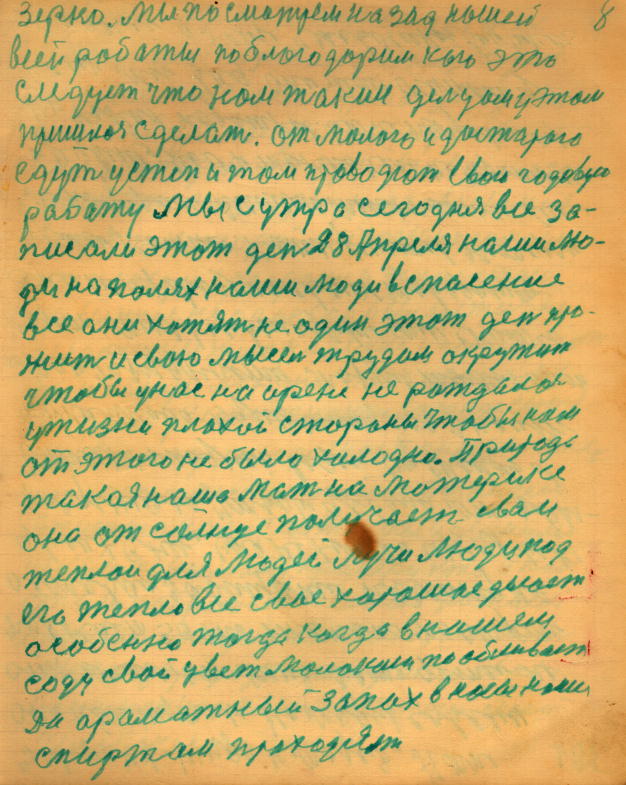 зерко. Мы посматрем назад нышей 8
всей работы поблогодорим кого это
следует что ном таким делцом у этом
пришлоя сделат. от молого и достарого
едут истеп и том проводют свои годовую
работу Мы с утра сегодня все за-
писали этот ден 28 Апреля наши лю-
ди на полях наши люди вспасение
все они хотят не один этот ден про-
жит и свою мысел трудом окружит
чтобы унас на орене не рождалоя
ужизни плохой стороны чтобы нам
от этого не было холодно. Природа
такая наша мат на мотерике
она от солнце получает сваи
теплои для людей лучи люди под
его тепло все свое хорошое дысет
особенно тогда когда внашем
соду свой цвет молоком пообливает
да ароматный запах в носы наши
спиртам проходят